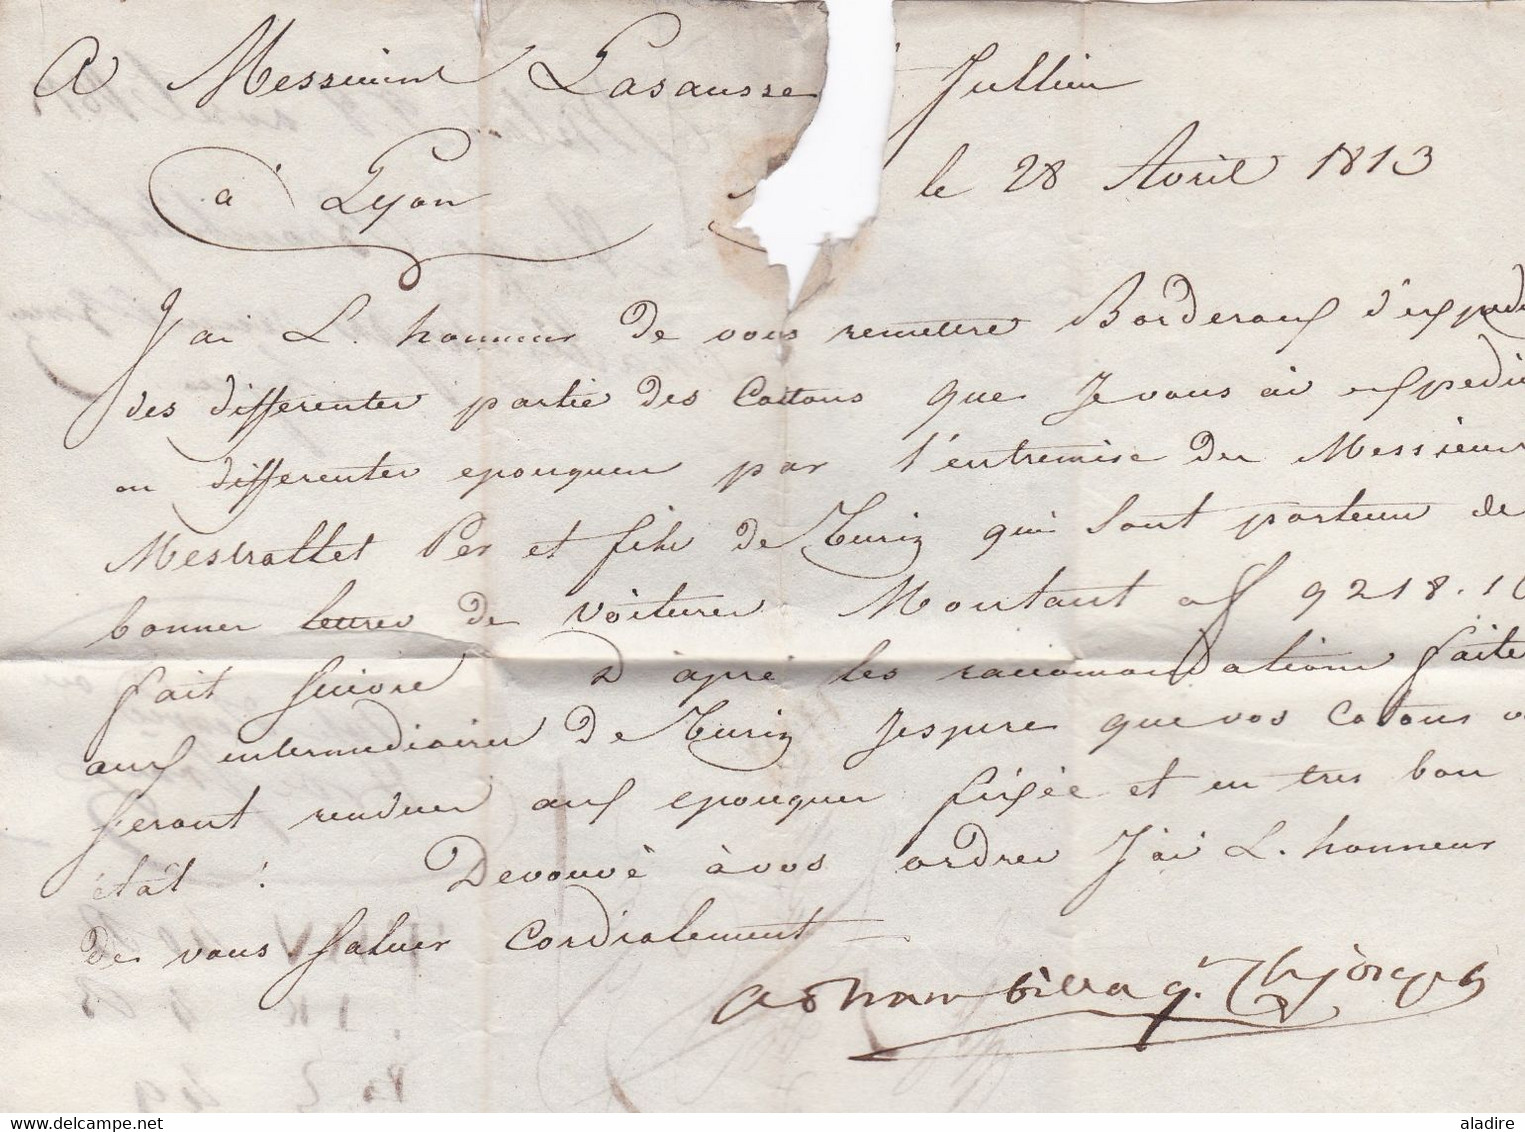 A Messieurs Lasausse Jullien
à Lyon le 28 Avril 1813
J'ai L. honneur de vous remettre Borderaux d'expedi
des differentes partie des Cottons que Je vous ai expedie
en differentes epouques par l'entremise des Messieurs
Mestrallet Per et fils de Turin qui sont porteur de
bonnes lettres de Voitures Montant a f 9218.10
fait suivre D'apré les raccomandations faite
aux intermediaires de Turin Jespere que vos Cotons
seront rendues aux epouques fixée et en tres bon
état. Devouvé à vos ordres J'ai L. honneur
De vous saluer Cordialement